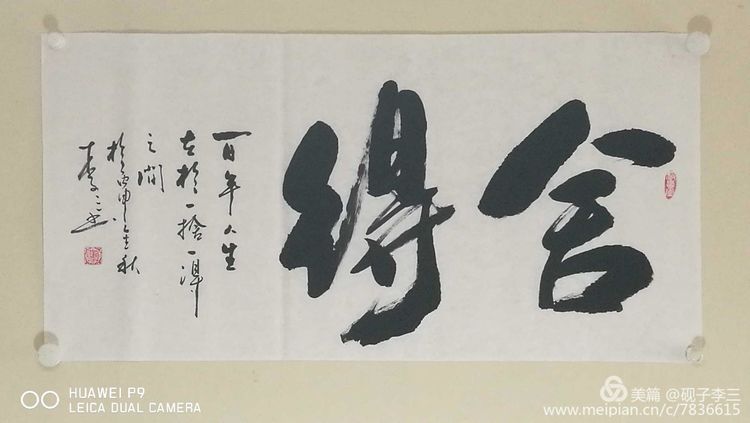 舍得
百年人生
在於一捨一得
之間
於丙申金秋
李三书
HUAWEI P9
LEICA DUAL CAMERA
美篇 @砚子李三
www.meipian.cn/c/7836615